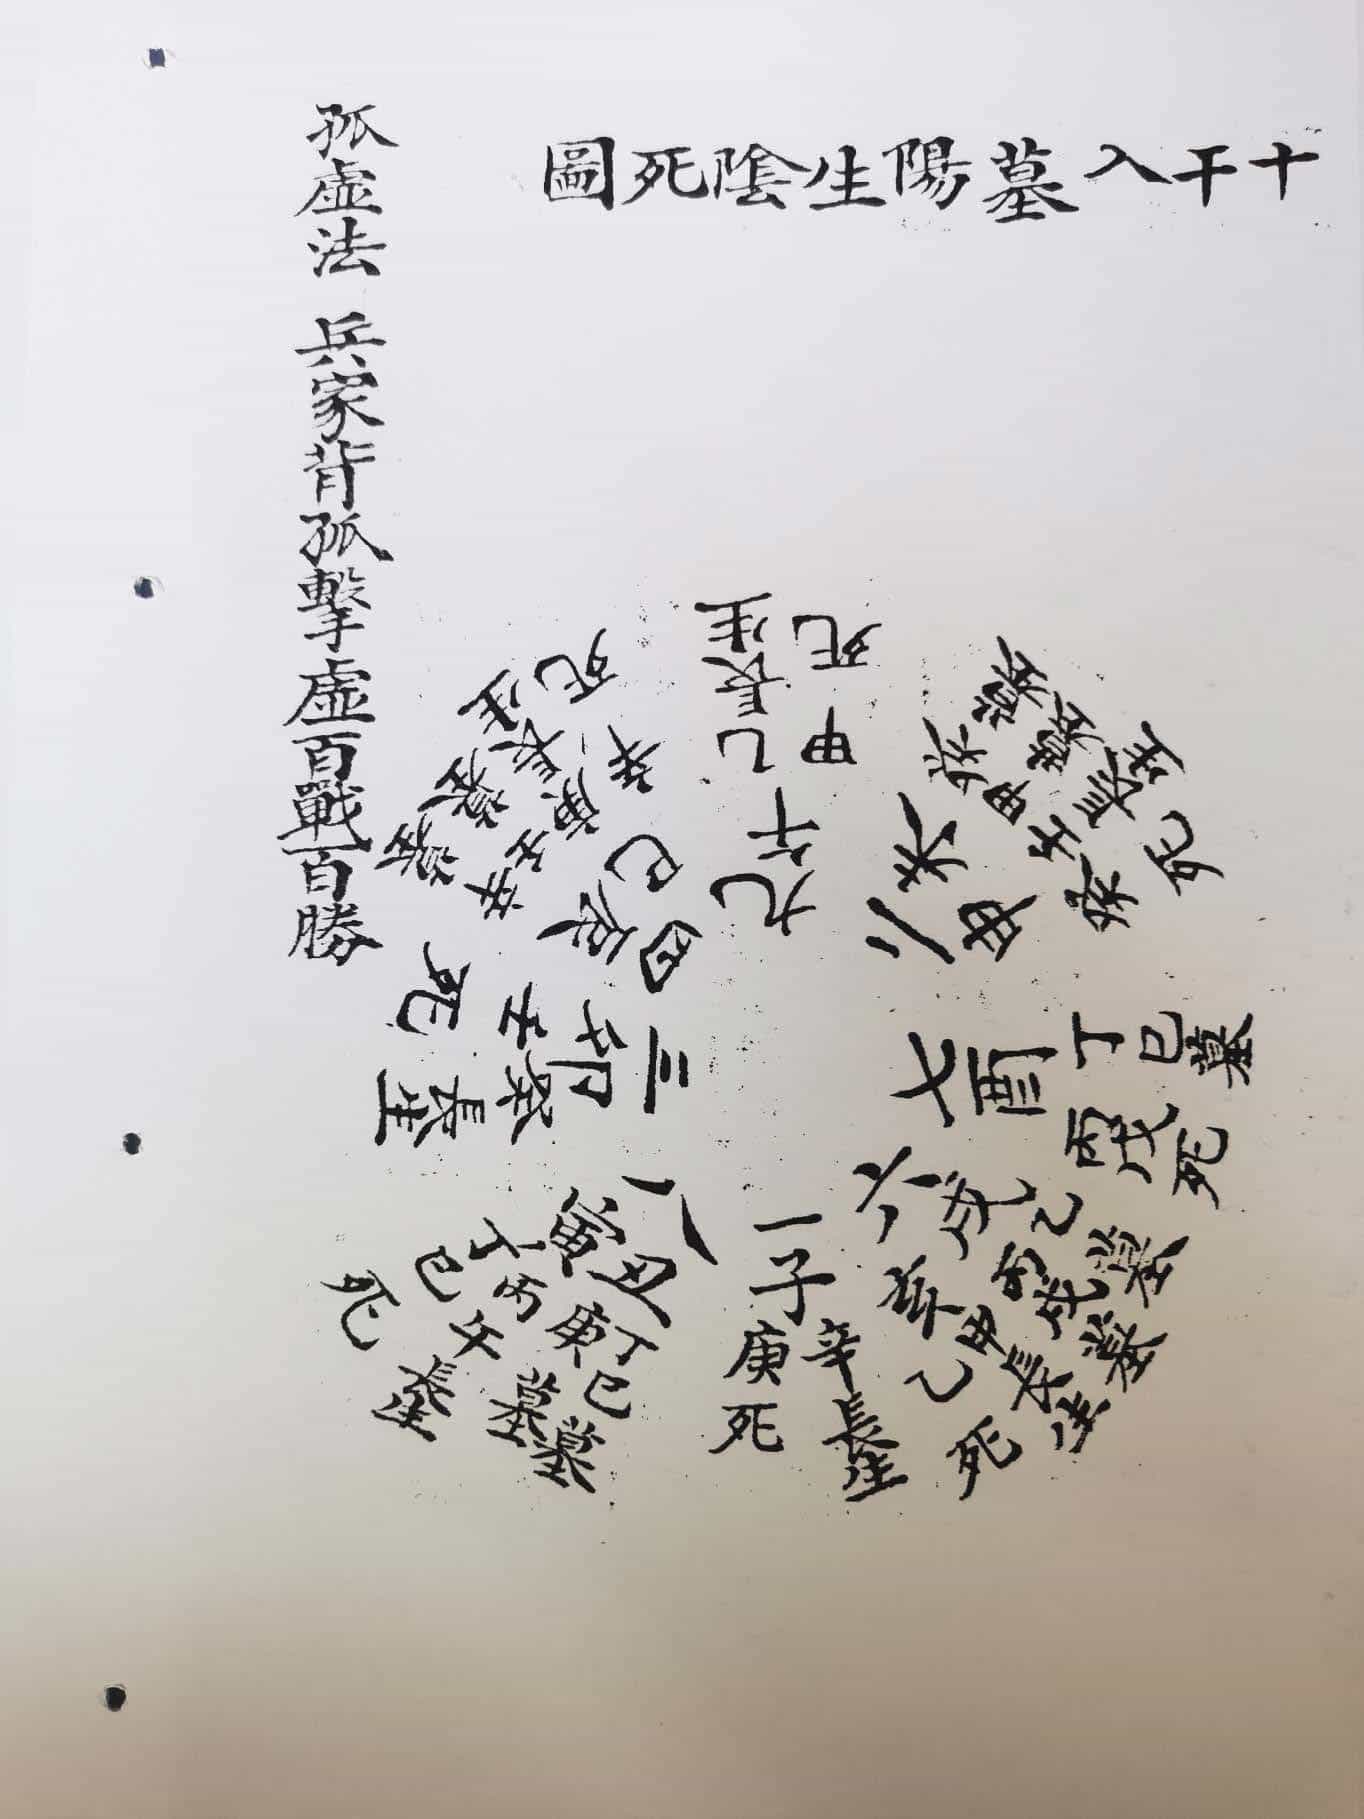 十干入墓陽生陰死圖
孤虛法 兵家背孤擊虛百戰百勝
九午
乙長生
甲死
二未申
癸墓
甲墓
壬長生
癸死
七酉
丁巳墓
丙戊死
六戌亥
乙墓
丙戊墓
甲長生
乙死
一子
辛長生
庚死
八丑寅
丁巳墓
庚墓
丙午長生
丁巳死
三卯
癸長生
壬死
四辰巳
辛墓
壬墓
庚長生
辛死